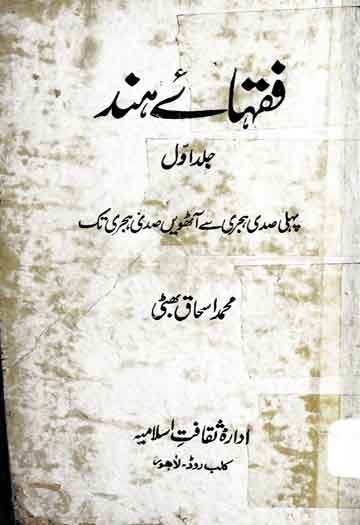 فقہائے ہند
جلد اوّل
پہلی صدی ہجری سے آٹھویں صدی ہجری تک
محمد اسحاق بھٹی
ادارۂ ثقافتِ اسلامیہ
کلب روڈ - لاہور